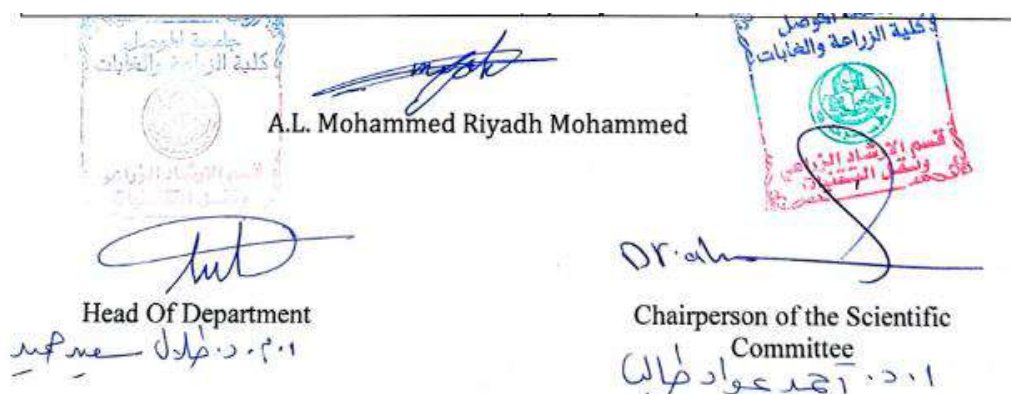 جامعة الموصل
كلية الزراعة والغابات
قسم الارشاد الزراعي
ونقل التقنيات
جامعة الموصل
كلية الزراعة والغابات
قسم الارشاد الزراعي
ونقل التقنيات
A.L. Mohammed Riyadh Mohammed
Head Of Department
ا.م.د. طلال سعيد حميد
Dr. ah
Chairperson of the Scientific
Committee
ا.د. أحمد عواد طالب